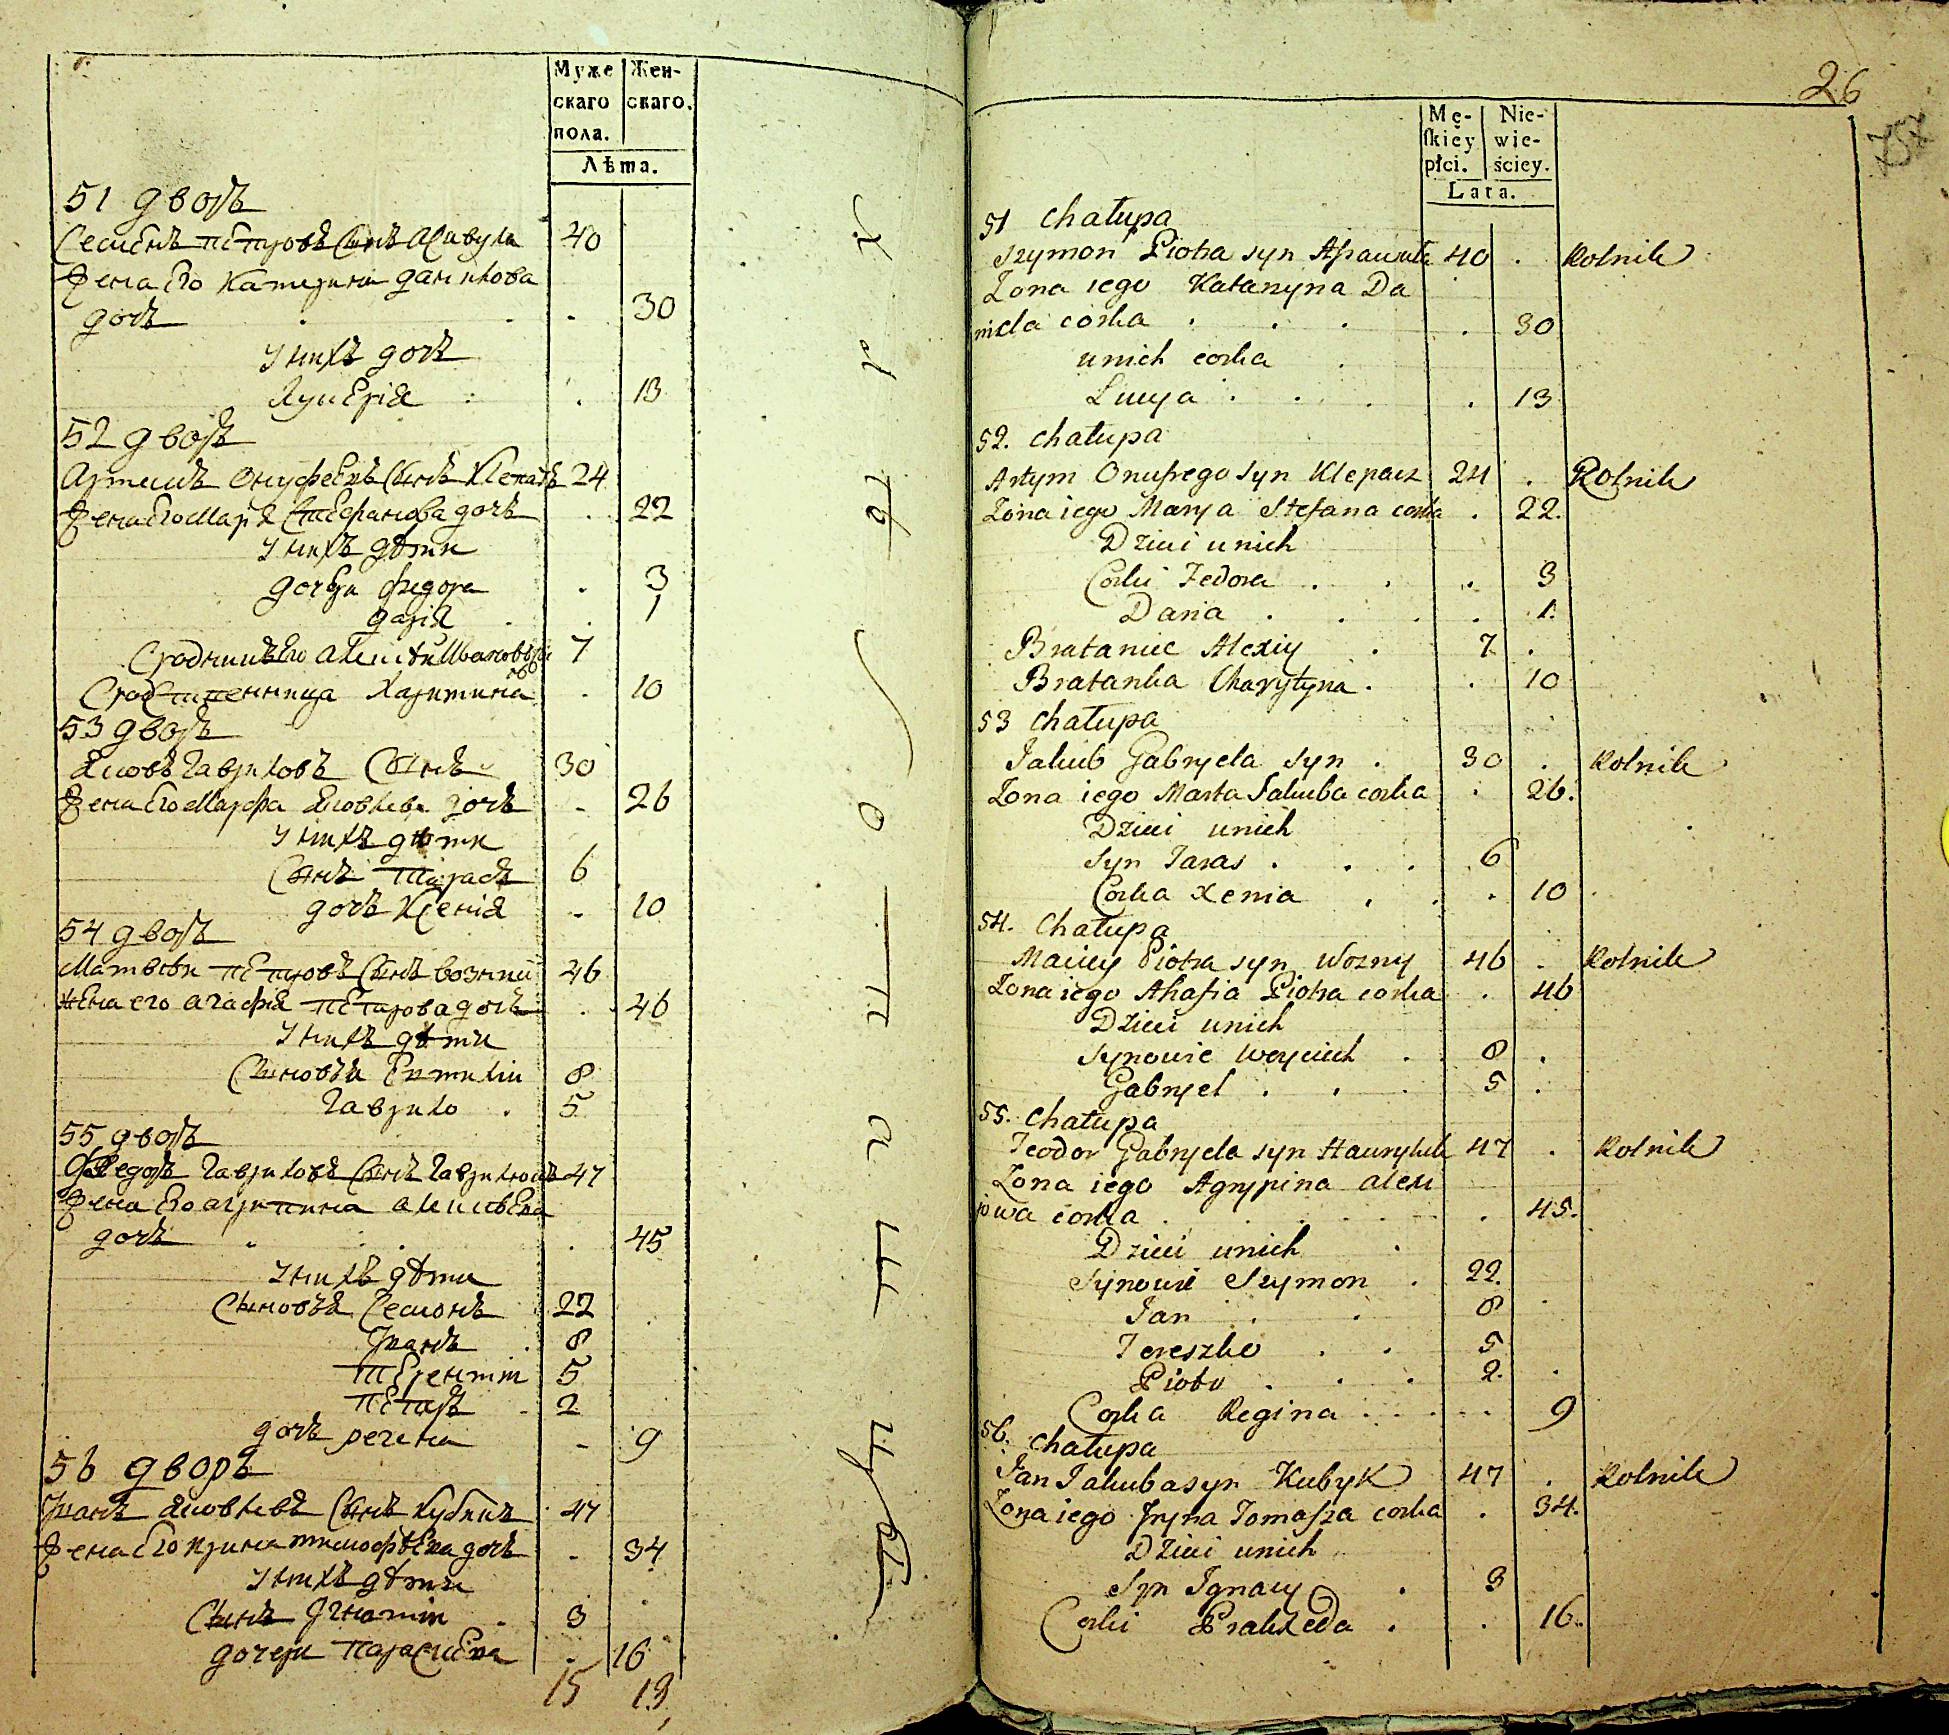 Муже
скаго
пола.
Жен-
скаго.
Лѣта.
51 дворъ
Семенъ Петровъ Сынъ 40
Жена Его Катерина данилова
дочь 30
У нихъ дочь
Лукерія 13
52 дворъ
Артемъ Онуфреевъ Сынъ Клепачь 24
Жена Его Марія Стефанова дочь 22
У нихъ дѣти
дочери федора 3
дарія 1
Сродникъ Его Алексѣй 7
Сродственница Харитина 10
53 дворъ
Яковъ Гавриловъ Сынъ 30
Жена Его Марфа Яковлева дочь 26
У нихъ дѣти
Сынъ Тарасъ 6
дочь Ксенія 10
54 дворъ
Матвѣй Петровъ Сынъ возний 46
Жена его агафія Петрова дочь 46
У нихъ дѣти
Сыновья 8
Гаврило 5
55 дворъ
Федоръ Гавриловъ Сынъ Гаврилюкъ 47
Жена Его агрипина алексѣева
дочь 45
У нихъ дѣти
Сыновья Семонъ 22
Иванъ 8
Терентій 5
Петръ 2
дочь регена 9
56 дворъ
Иванъ Яковлевъ Сынъ Кубикъ 47
Жена Его Ирина тимофѣева дочь 34
У нихъ дѣти
Сынъ Игнатій 3
дочери Параскева 16
15 19
26
757
Mę-
skiéy
płci.
Nie-
wie-
ściey.
Lata.
51 Chałupa
Szymon Piotra syn 40 Rolnik
Zona iego Katarzyna Da
niela corka 30
unich corka
Lucya 13
52. Chałupa
Artym Onufrego Syn Klepacz 24 Rolnik
Zona iego Marya Stefana corka 22.
Dzieci unich
Corki Fedora 3
Daria 1.
Bratanic Alexiy 7
Bratanka Charytyna 10
53 Chałupa
Jakub Gabryela syn 30 Rolnik
Zona iego Marta Jakuba corka 26.
Dzieci unich
Syn Taras 6
Corka Xenia 10
54. Chałupa
Maciey Piotra syn Wozny 46 Rolnik
Zona iego Ahafia Piotra corka 46
Dzieci unich
Synowie Woyciech 8
Gabryel 5
55. Chałupa
Teodor Gabryela syn Hauryluk 47 Rolnik
Zona iego Agrypina alexi
iowa corka 45.
Dzieci unich
Synowie Szymon 22.
Jan 8
Tereszko 5
Piotr 2.
Corka Regina 9
56. Chałupa
Jan Jakuba syn Kubyk 47 Rolnik
Zona iego Iryna Tomasza corka 34.
Dzieci unich
Syn Ignacy 3
Corki Praxeda 16.